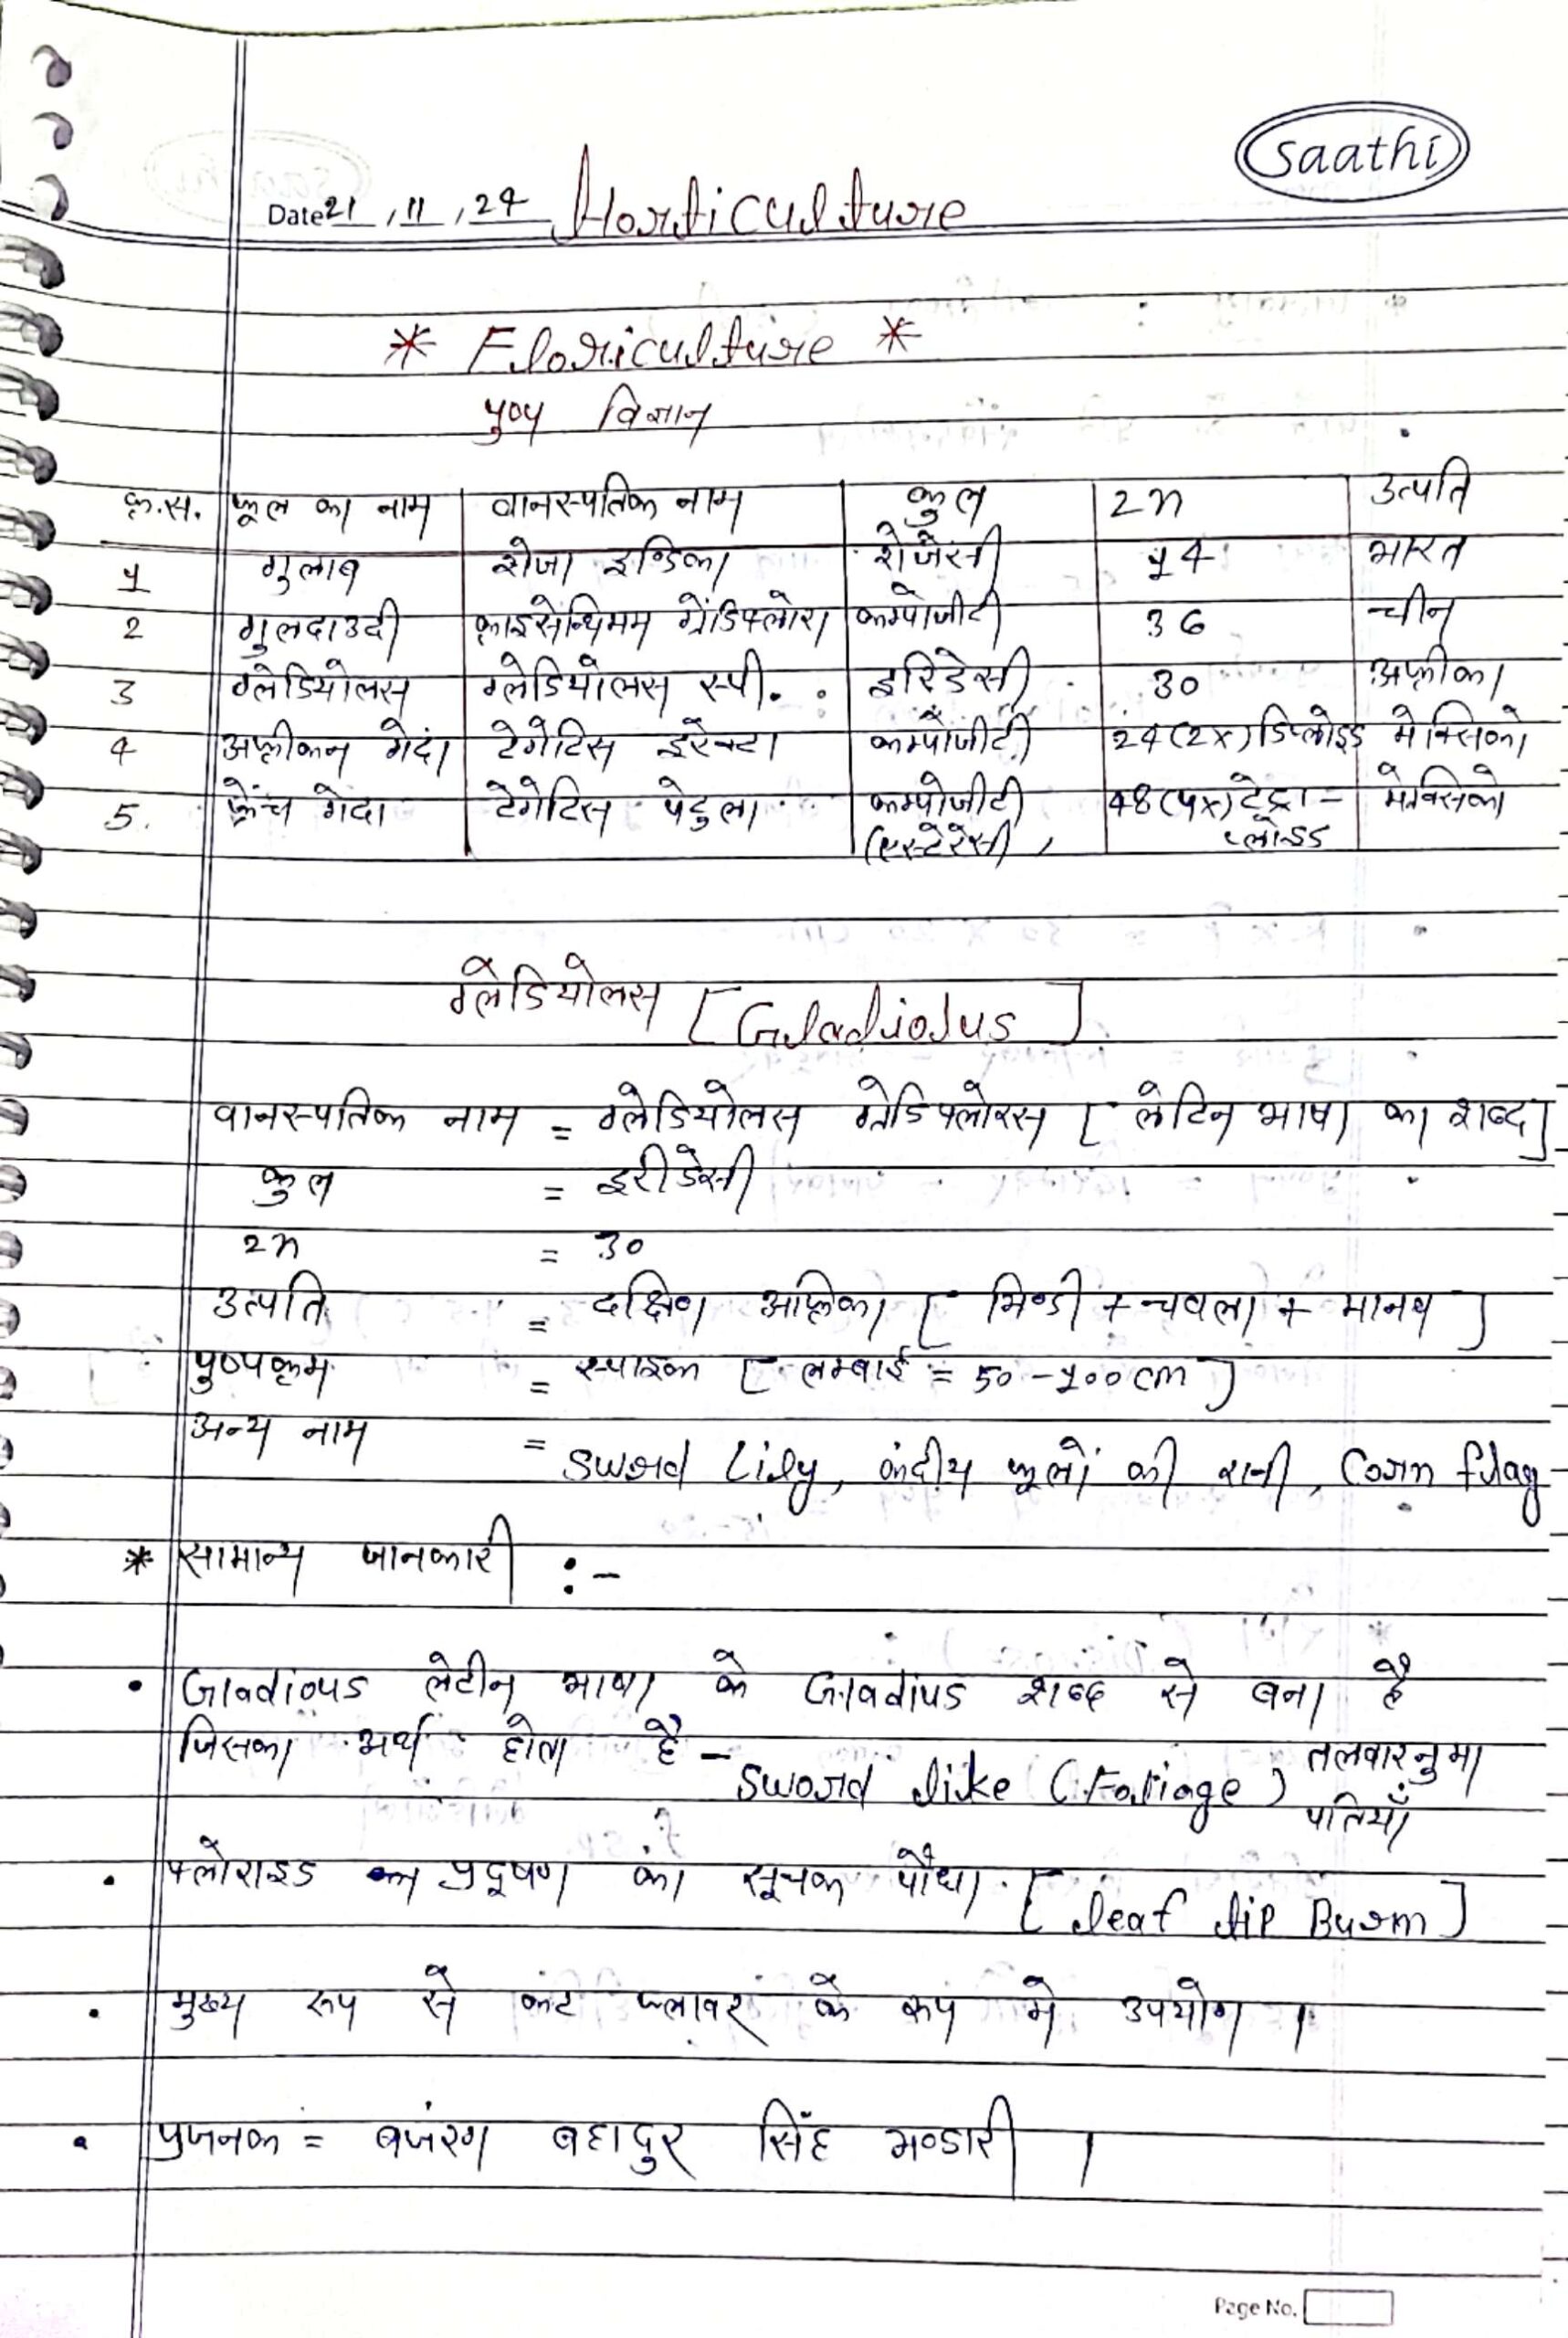 saathi
Date 21/11/24 Horticulture
* Floriculture *
पुष्प विज्ञान
क्र.स. फूल का नाम वानस्पतिक नाम कुल 2n उत्पति
1 गुलाब रोजा इण्डिका रोजेसी 14 भारत
2 गुलदाउदी क्राइसेन्थिमम ग्रेंडिफ्लोरा कम्पोजीटी 36 चीन
3 ग्लेडियोलस ग्लेडियोलस स्पी. इरिडेसी 30 अफ्रीका
4 अफ्रीकन गेदां टेगेटिस इरेक्टा कम्पोजीटी 24(2x) डिप्लोइड मेक्सिको
5. फ्रेंच गेदा टेगेटिस पेटुला कम्पोजीटी 48(4x) टेट्रा- मेक्सिको
(एस्टेरेसी) प्लोइड
ग्लेडियोलस [Gladiolus]
वानस्पतिक नाम = ग्लेडियोलस ग्रेडिफ्लोरस [लेटिन भाषा का शब्द]
कुल = इरीडेसी
2n = 30
उत्पति = दक्षिण अफ्रिका [भिण्डी + चवला + मानव]
पुष्पक्रम = स्पाइक [लम्बाई = 50-100cm]
अन्य नाम = Sword Lily, कंदीय फूलों की रानी, Corn flag
* सामान्य जानकारी :-
• Gladious लेटीन भाषा के Gladius शब्द से बना है
जिसका अर्थ होता है - Sword like (Foliage) तलवारनुमा
पतियाँ
• फ्लोराइड प्रदूषण का सूचक पौधा [leaf tip Burn]
• मुख्य रूप से कट फ्लावर के रूप मे उपयोग ।
• प्रजनक = बजंरग बहादुर सिंह भण्डारी ।
Page No.